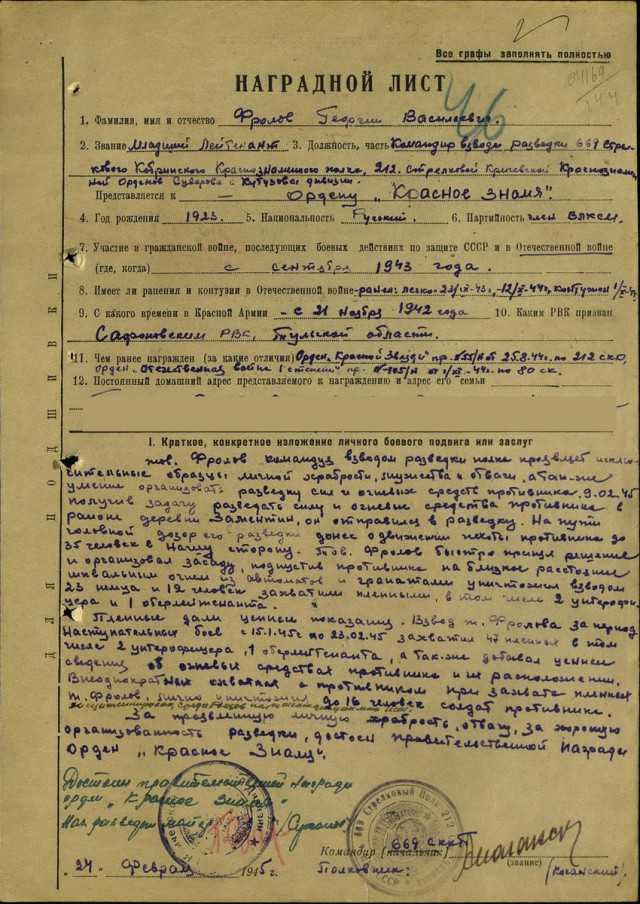 Все графы заполнять полностью
46
04169
144
НАГРАДНОЙ ЛИСТ
1. Фамилия, имя и отчество Фролов Георгий Васильевич.
2. Звание Младший Лейтенант 3. Должность, часть Командир взвода разведки 669 Стрел-
кового Кобринского Краснознаменного полка, 212. стрелковой Кричевской Краснознамен-
ной Орденов Суворова и Кутузова дивизии.
Представляется к — Ордену „Красное Знамя".
4. Год рождения 1923. 5. Национальность Русский. 6. Партийность член ВЛКСМ.
7. Участие в гражданской войне, последующих боевых действиях по защите СССР и в Отечественной войне
(где, когда) с сентября 1943 года.
8. Имеет ли ранения и контузии в Отечественной войне - ранен легко -
9. С какого времени в Красной Армии - с 21 Ноября 1942 года 10. Каким РВК призван
Сафоновским РВК, Тульской области.
11. Чем ранее награжден (за какие отличия) Орден „Красной Звезды" пр. №55/н от 25.8.44г. по 212 сКД,
орден „Отечественная война 1 степени" пр. по 80 ск.
12. Постоянный домашний адрес представляемого к награждению и адрес его семьи
ДЛЯ ПОДШИВКИ
I. Краткое, конкретное изложение личного боевого подвига или заслуг
тов. Фролов командуя взводом разведки полка проявляет исклю-
чительные образцы личной храбрости, мужества и отваги, а так-же
умение организовать разведку сил и огневых средств противника. 9.02.45
получив задачу разведать силу и огневые средства противника в
районе деревни Заментин, он отправился в разведку. На пути
головной дозор его разведки донес о движении пехоты противника до
35 человек в нашу сторону. Тов. Фролов быстро принял решение
и организовал засаду, подпустив противника на близкое расстояние
шквальным огнем из автоматов и гранатами уничтожил взводом
23 немца и 12 человек захватили пленными, в том числе 2 унтерофи-
цера и 1 оберлейтенанта.
Пленные дали ценные показания. Взвод т. Фролова за период
Наступательных боев с 15.1.45г по 23.02.45 захватил 47 пленных в том
числе 2 унтерофицера, 1 оберлейтенанта, а так-же добывал ценные
сведения об огневых средствах противника и их расположении.
В неоднократных схватках с противником при захвате пленных
т. Фролов, лично уничтожил до 16 человек солдат противника.
За проявленную личную храбрость, отвагу, за хорошую
организованность разведки, достоин правительственной награды
Орден „Красное Знамя".
Достоин правительственной награды
орден „Красное Знамя"
Нач. разведки майор
669 Стрелковый Полк 212
Командир (начальник) 669 СККП
Полковник: (звание) (Коганский)
24 Февраля 1945 г.